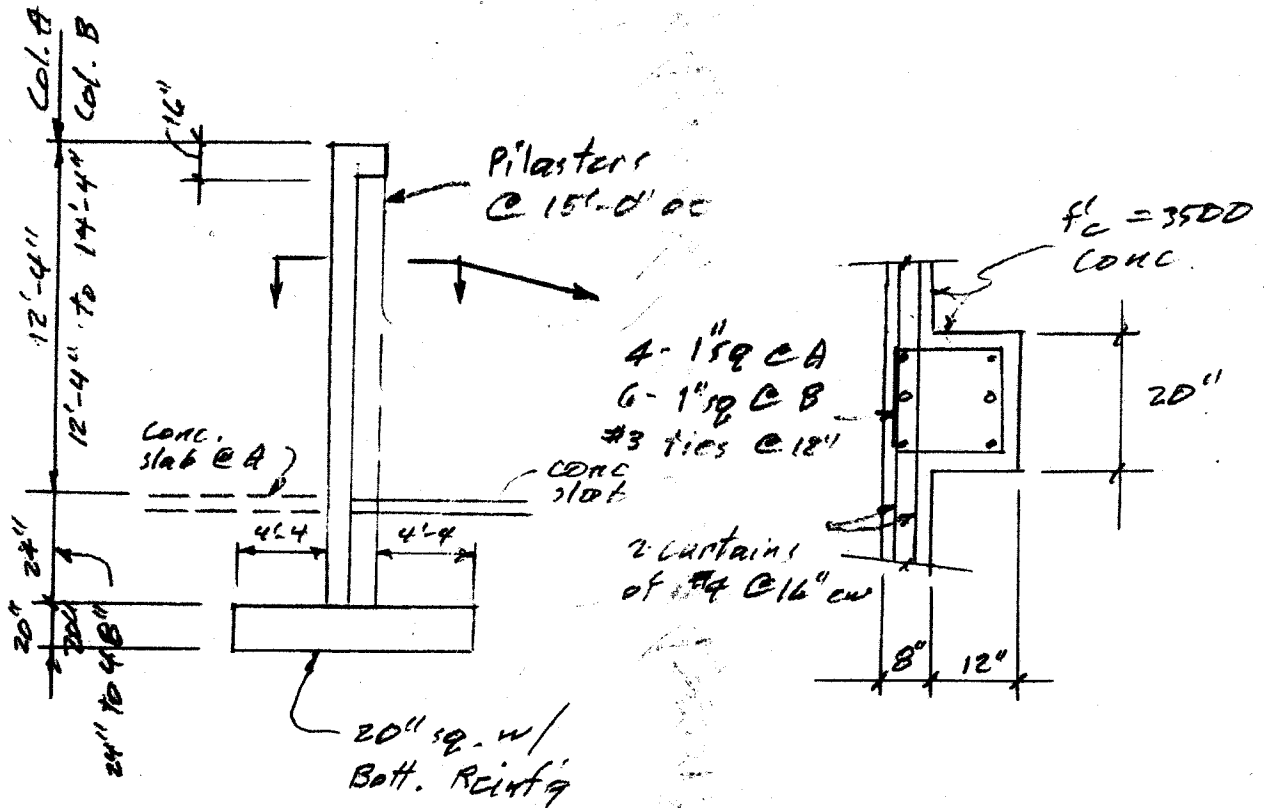 Col. A
Col. B
16"
Pilasters
@ 15'-0" oc
12'-4"
12'-4" to 14'-4"
f'c = 3500
conc.
4 - 1" sq @ A
6 - 1" sq @ B
#3 ties @ 18"
20"
conc.
slab @ A
conc
slab
4'-4
4'-4
2 curtains
of #4 @ 16" ew
24"
20"
24" to 48"
8"
12"
20" sq. w/
Bott. Reinf'g